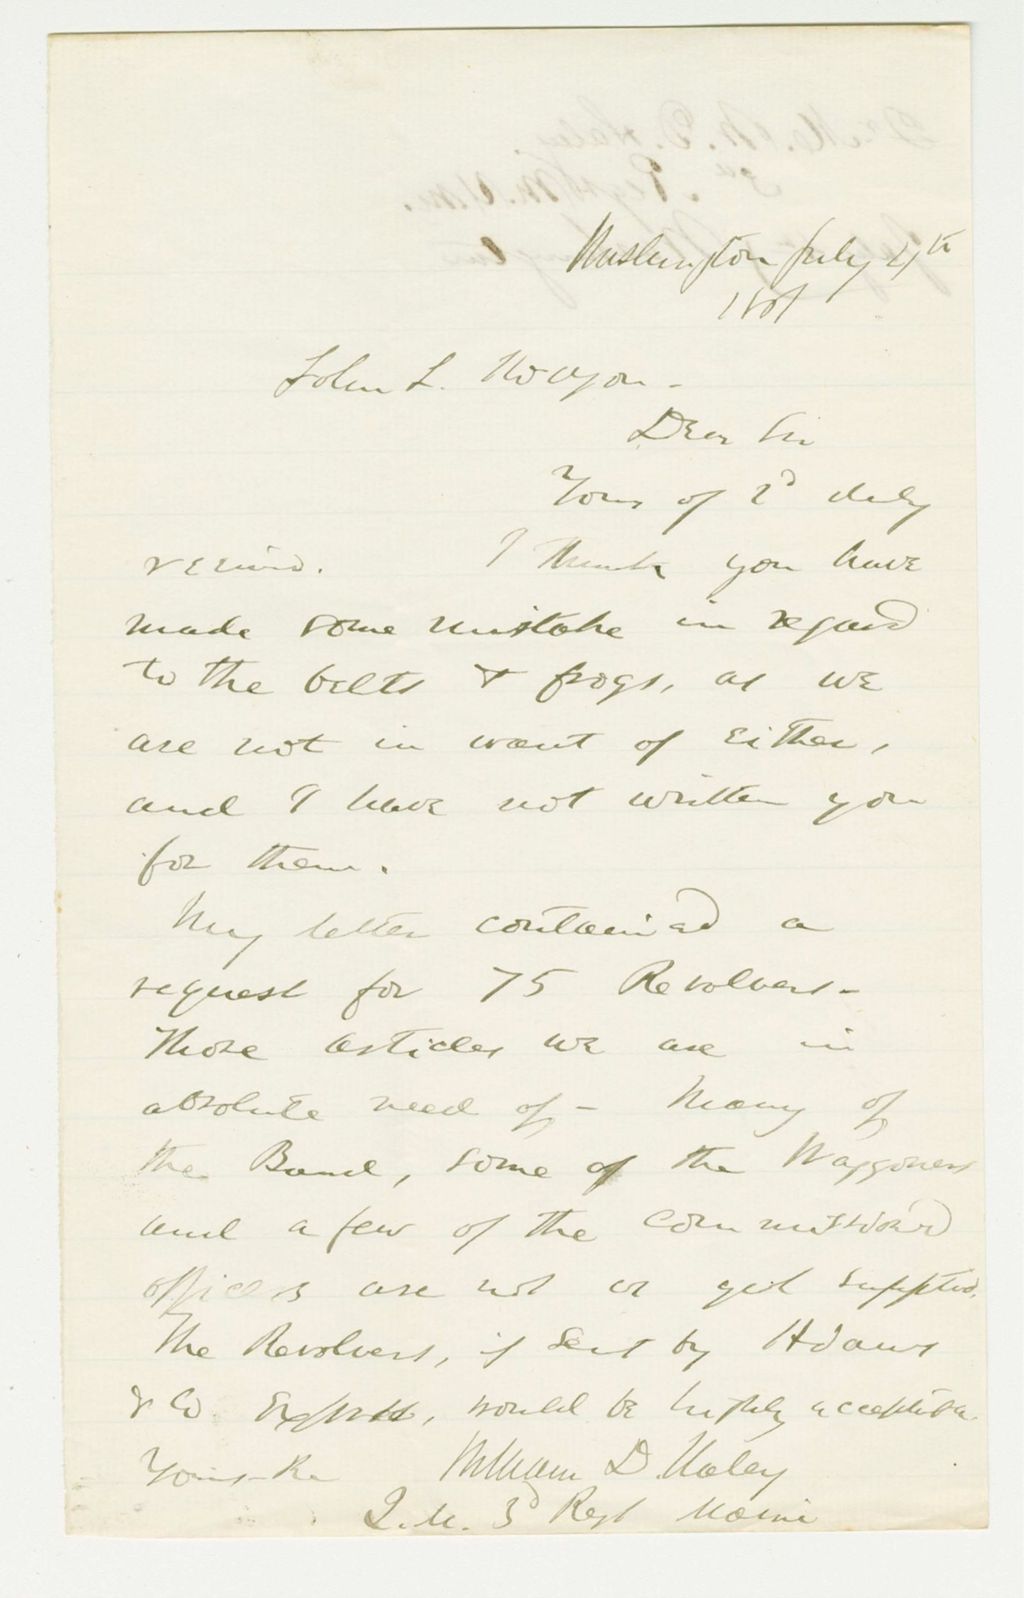 Washington July 4th
1861
John L. Hodsdon -
Dear Sir
Yours of 2d duly
receivd. I think you have
made some mistake in regard
to the belts & frogs, as we
are not in want of either,
and I have not written you
for them.
My letter contained a
request for 75 Revolvers -
Those articles we are in
absolute need of - Many of
the Band, some of the Waggoners
and a few of the commissiond
officers are not as yet supplied.
The Revolvers, if sent by Adams
& Co. Express, would be highly acceptable.
Yours &c William D. Haley
Q.M. 3d Regt Maine